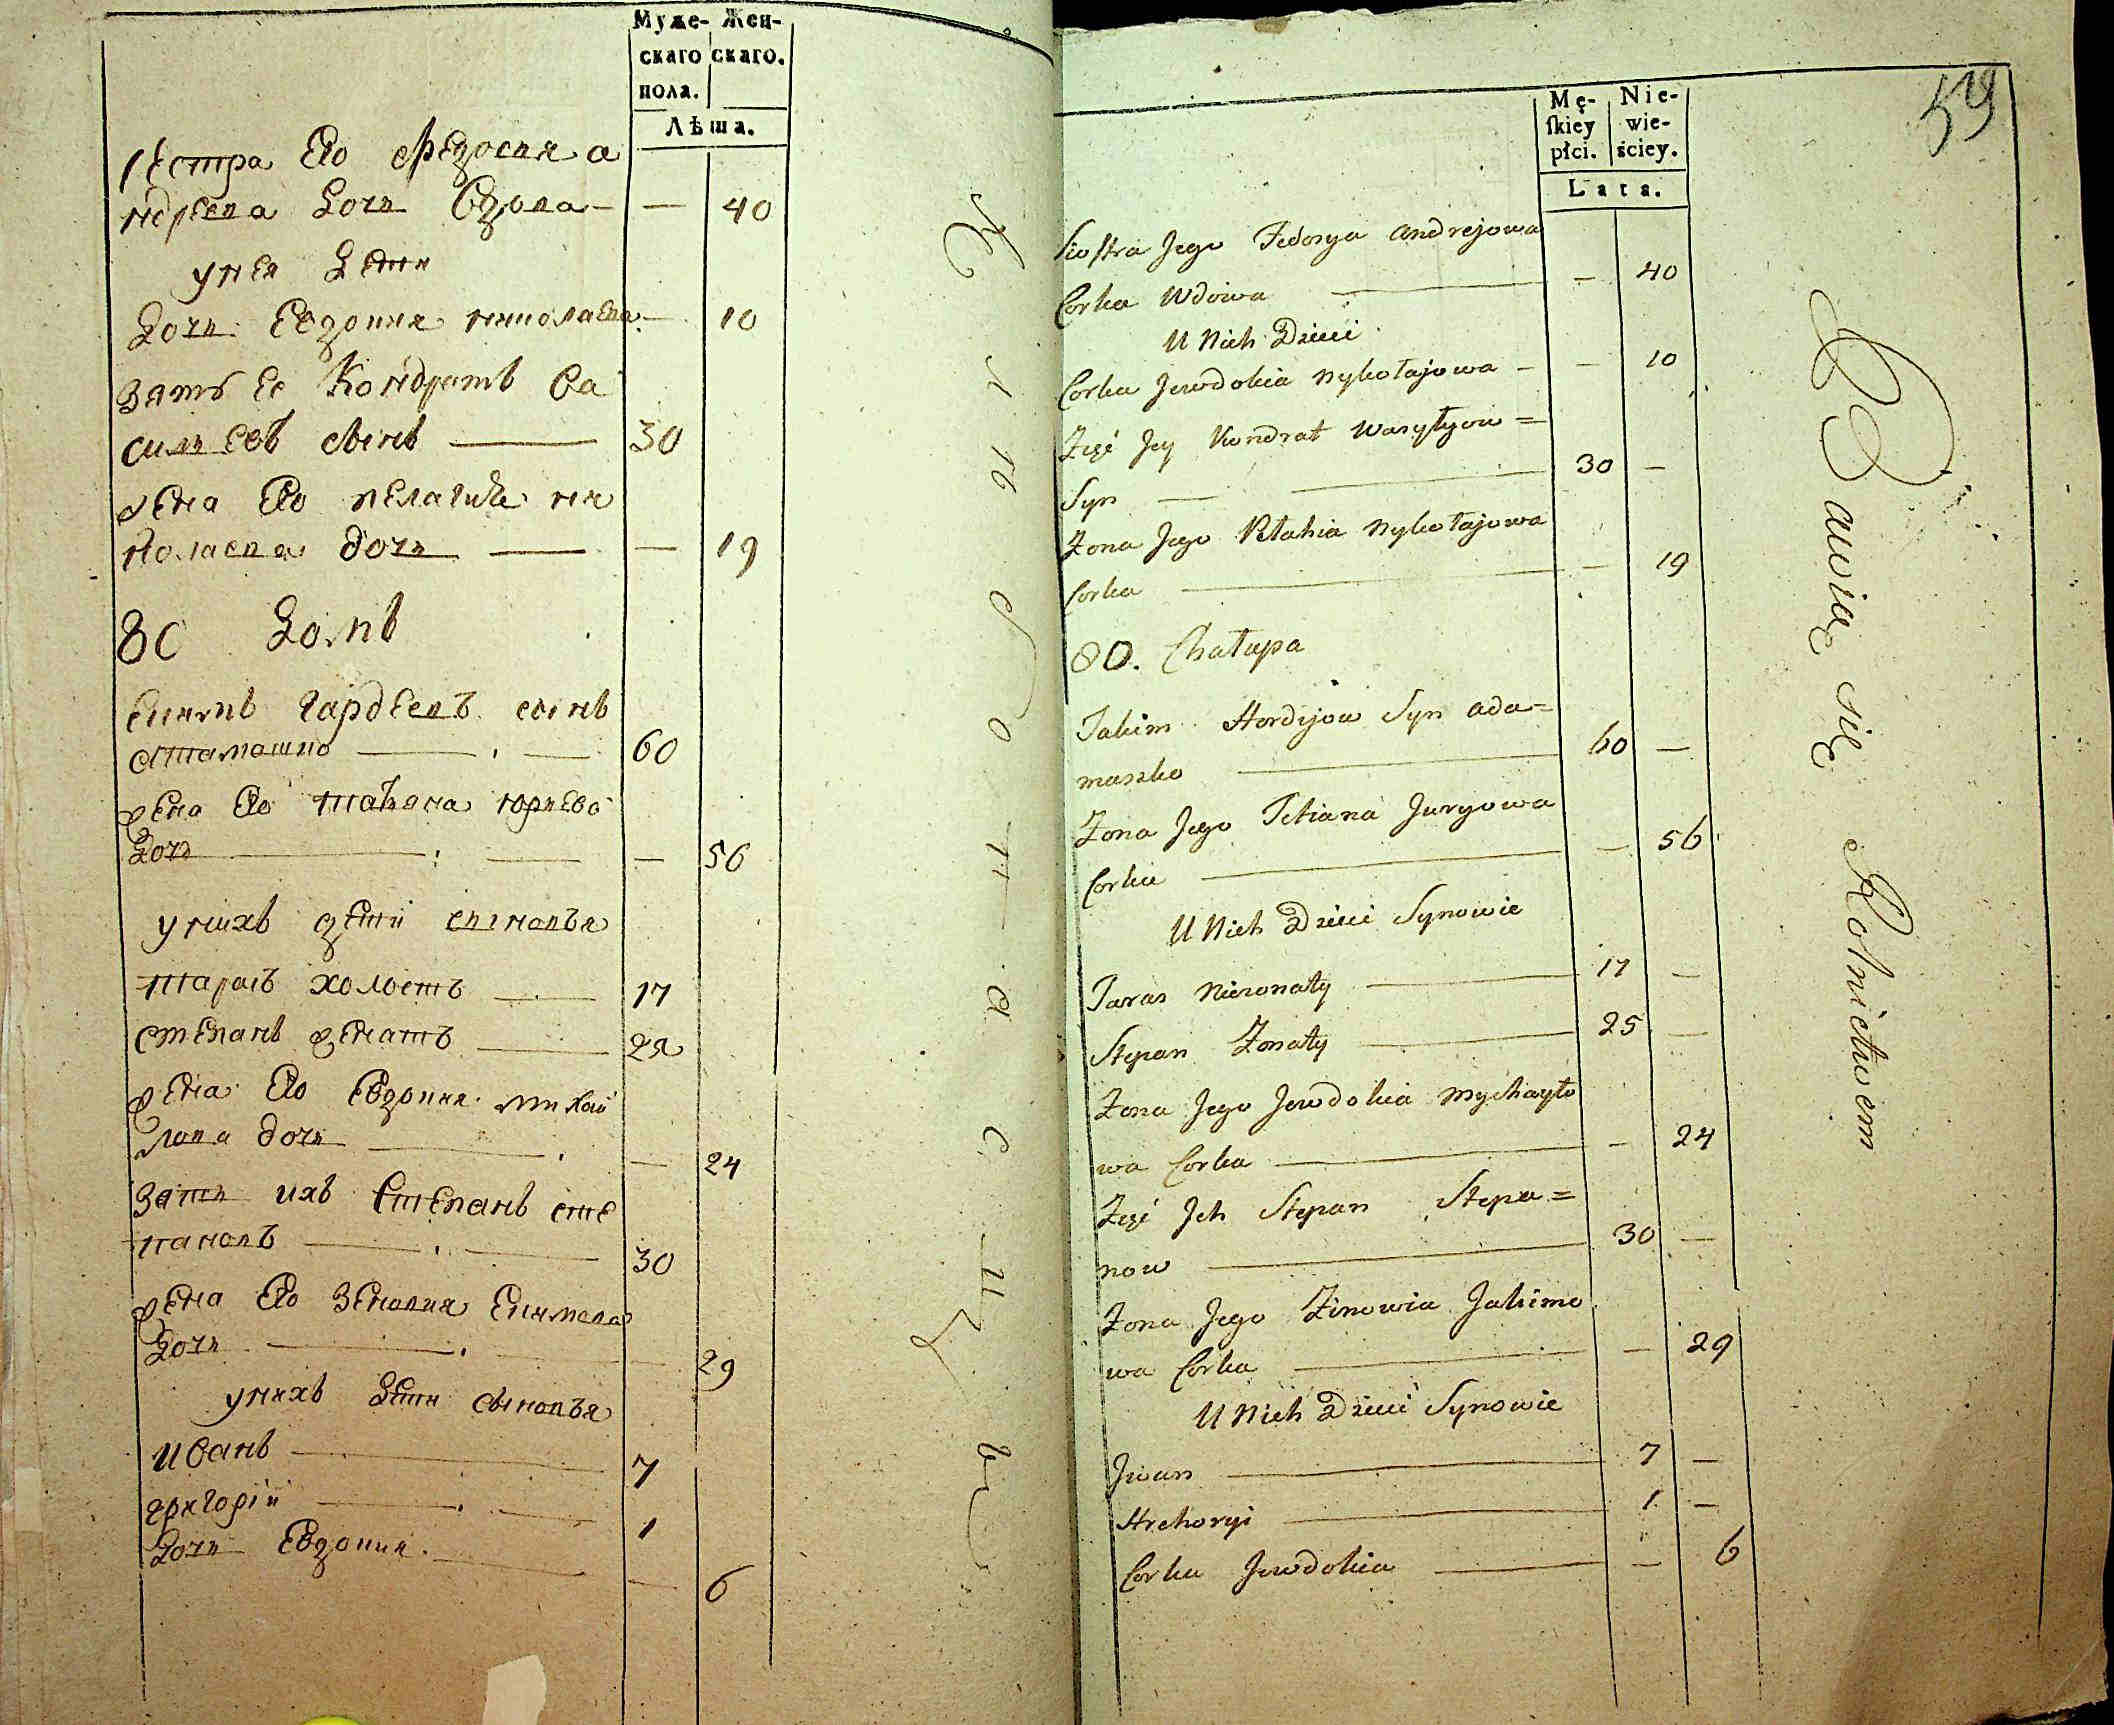 Муже- Жен-
скаго скаго.
пола.
Лѣта.
Сестра Его Федосия а
ндреева Дочь Вдова — — 40
у нея Дети
Дочь Евдокия николаева — 10
Зять Ее Кондратъ Ва
сильевъ Сынъ — 30
жена Его пелагия ни
колаева дочь — — 19
80 Домъ
Екимъ Гордеевъ сынъ
Адамашко — 60
жена Его татьяна юрьева
Дочь — — 56
у нихъ дети сыновья
тарасъ холостъ — 17
степанъ женатъ — 25
жена Его Евдокия михай
лова дочь — — 24
Зять ихъ Степанъ сте
пановъ — 30
жена Его Зеновия Екимова
Дочь — — 29
у нихъ Дети сыновья
Иванъ — 7
григорій — 1
Дочь Евдокия — — 6
59
Mę- Nie-
skiey wie-
płci. ściey.
Lata.
Siostra Jego Fedosya Andrejowa
Corka Wdowa — — 40
U Nich Dzieci
Corka Jewdokia Mykołajowa — — 10
Zięć Jey Kondrat Wasylyow=
Syn — — 30 —
Zona Jego Pełahia Mykołajowa
Corka — — 19
80. Chałupa
Jakim Hordijow Syn Ada=
maszko — 60 —
Zona Jego Tetiana Juryowa
Corka — — 56
U Nich Dzieci Synowie
Taras Niezonaty — 17 —
Stepan Zonaty — 25 —
Zona Jego Jewdokia Mychayło
wa Corka — — 24
Zięć Jch Stepan Stepa=
now — 30 —
Zona Jego Zinowia Jakimo
wa Corka — — 29
U Nich Dzieci Synowie
Jwan — 7 —
Hrehoryi — 1 —
Corka Jewdokia — — 6
Bawią się Rolnictwem